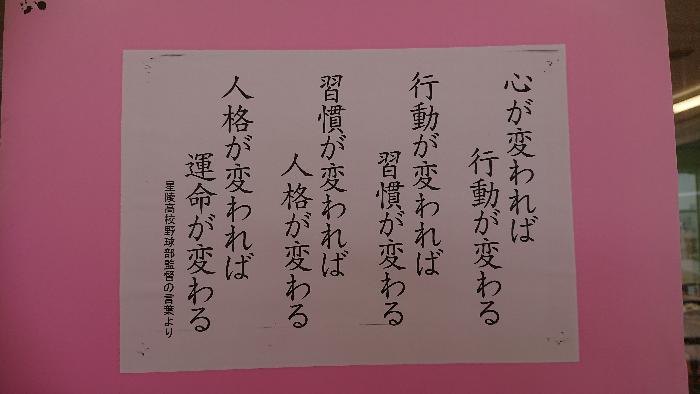 心が変われば
行動が変わる
行動が変われば
習慣が変わる
習慣が変われば
人格が変わる
人格が変われば
運命が変わる
星陵高校野球部監督の言葉より